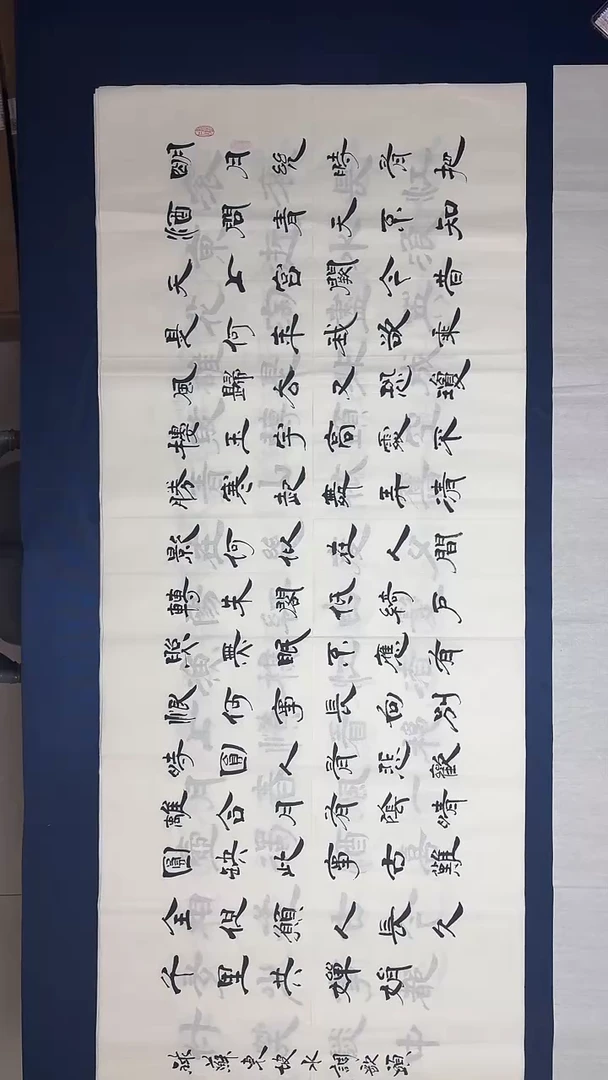 明月幾時有把
酒問青天不知
天上宮闕今昔
是何年我欲乘
風歸去又恐瓊
樓玉宇高處不
勝寒起舞弄清
影何似在人間
轉朱閣低綺戶
照無眠不應有
恨何事長向別
時圓人有悲歡
離合月有陰晴
圓缺此事古難
全但願人長久
千里共嬋娟
錄蘇東坡水調歌頭